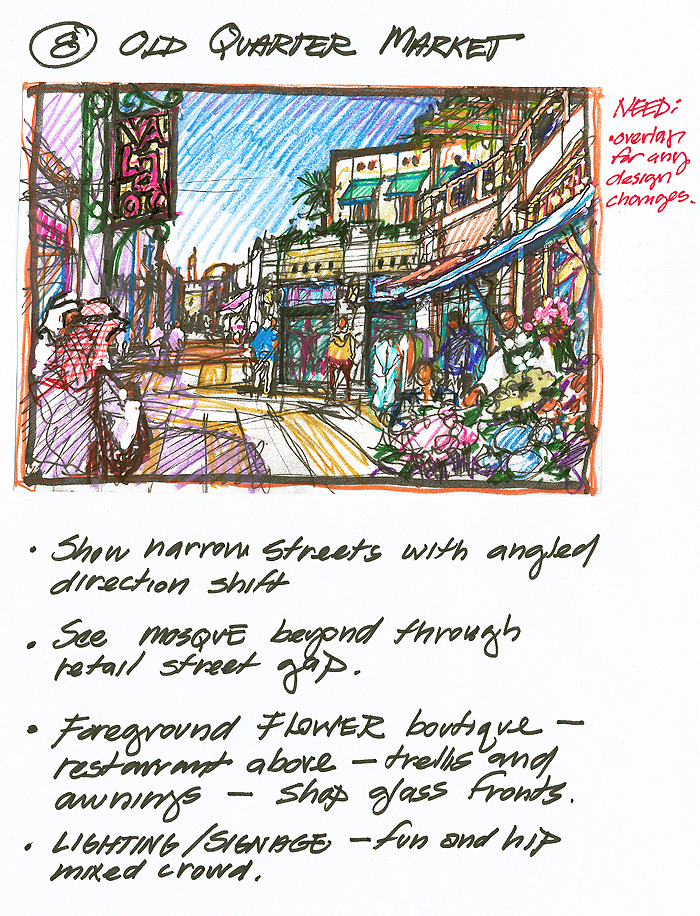 8 OLD QUARTER MARKET
NEED:
• overlap
for any
design
changes.
• Show narrow streets with angled
direction shift
• See MOSQUE beyond through
retail street gap.
• Foreground FLOWER boutique —
restaurant above — trellis and
awnings — shop glass fronts.
• LIGHTING/SIGNAGE — fun and hip
mixed crowd.